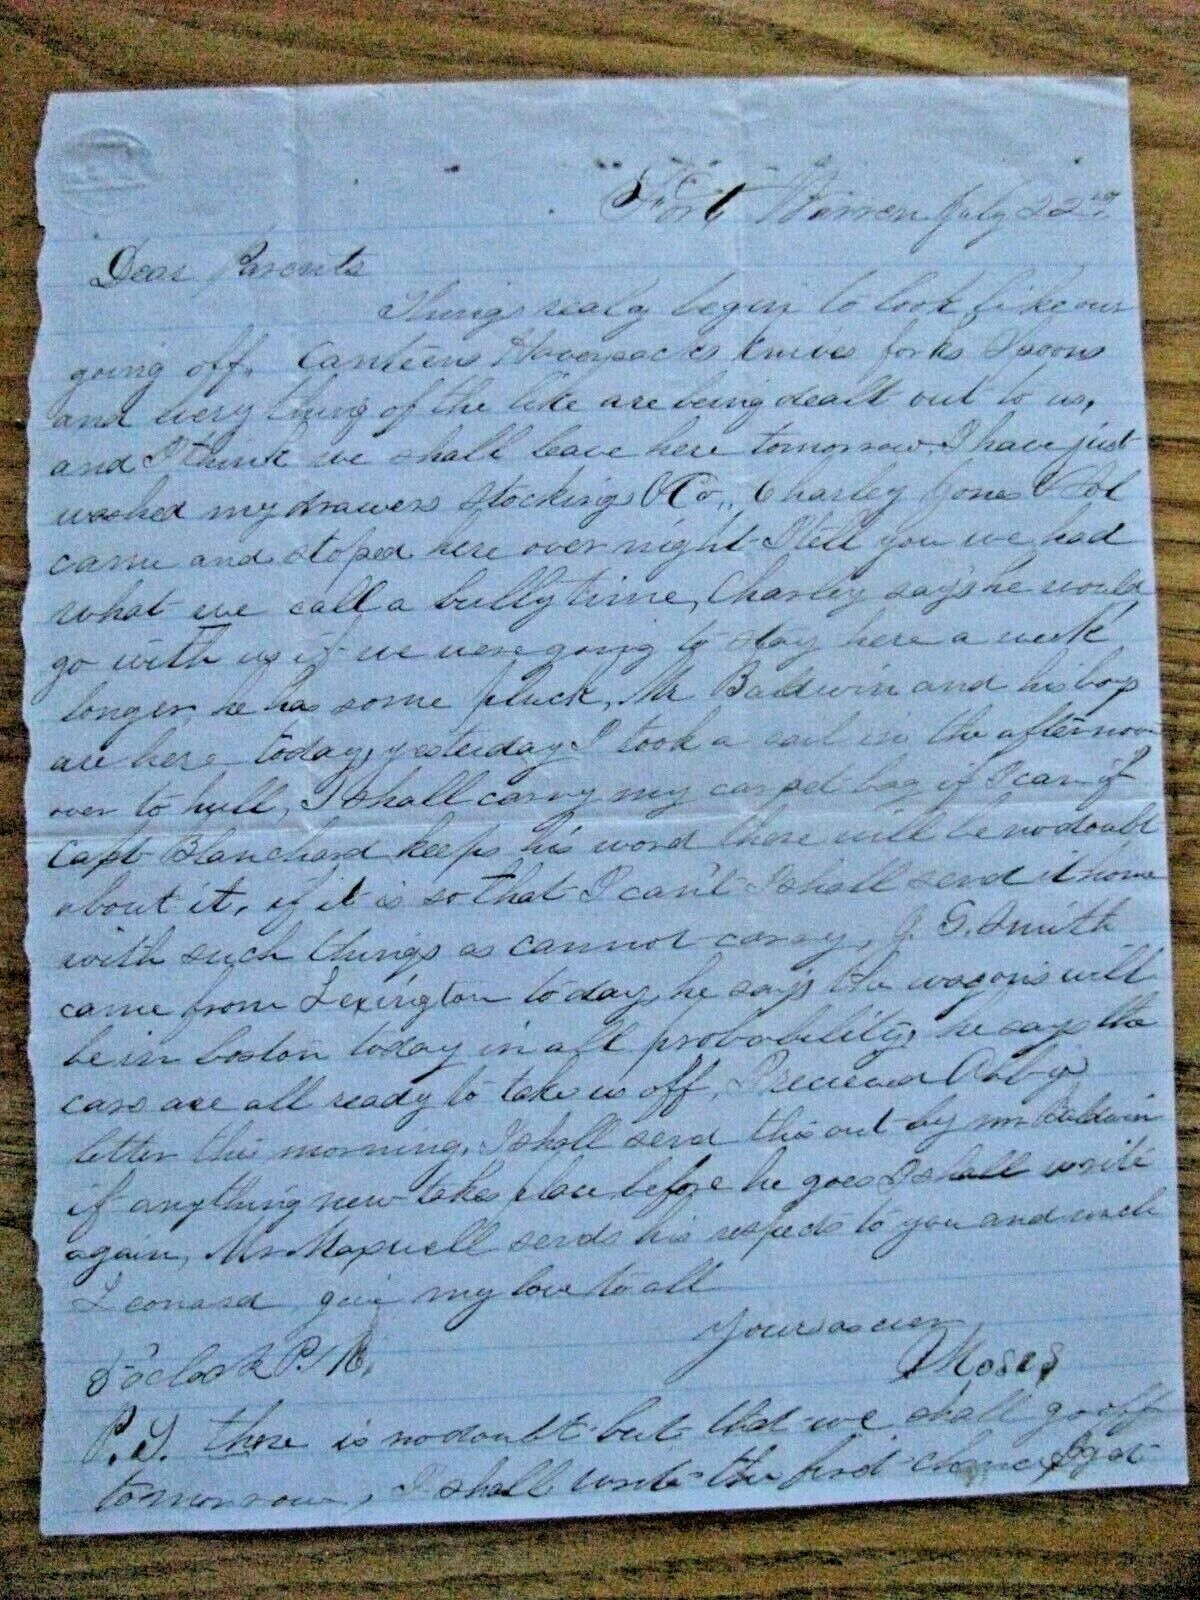 Fort Warren July 22nd
Dear Parents
Things realy begin to look like our
going off. Canteens Haversacks knives forks Spoons
and every thing of the like are being dealt out to us,
and I think we shall leave here tomorrow. I have just
washed my drawers stockings &Co., Charley Jones &
came and stoped here over night I tell you we had
what we call a bully time, Charley says he would
go with us if we were going to stay here a week
longer, he has some pluck, Mr Baldwin and his boy
are here today, yesterday I took a sail in the afternoon
over to hull, I shall carry my carpet bag if I can if
Capt Blanchard keeps his word there will be no doubt
about it, if it is so that I can't I shall send it home
with such things as cannot carry, J. G. Smith
came from Lexington today, he says the wagons will
be in boston today in all probability, he says the
cars are all ready to take us off, I recieved
letter this morning, I shall send this out by mr Baldwin
if anything new takes place before he goes I shall write
again, Mr Maxwell sends his respects to you and uncle
Leonard, give my love to all
Yours as ever
Moses
o'clock P.M.
P.S. there is no doubt but that we shall go off
tomorrow, I shall write the first chance I get